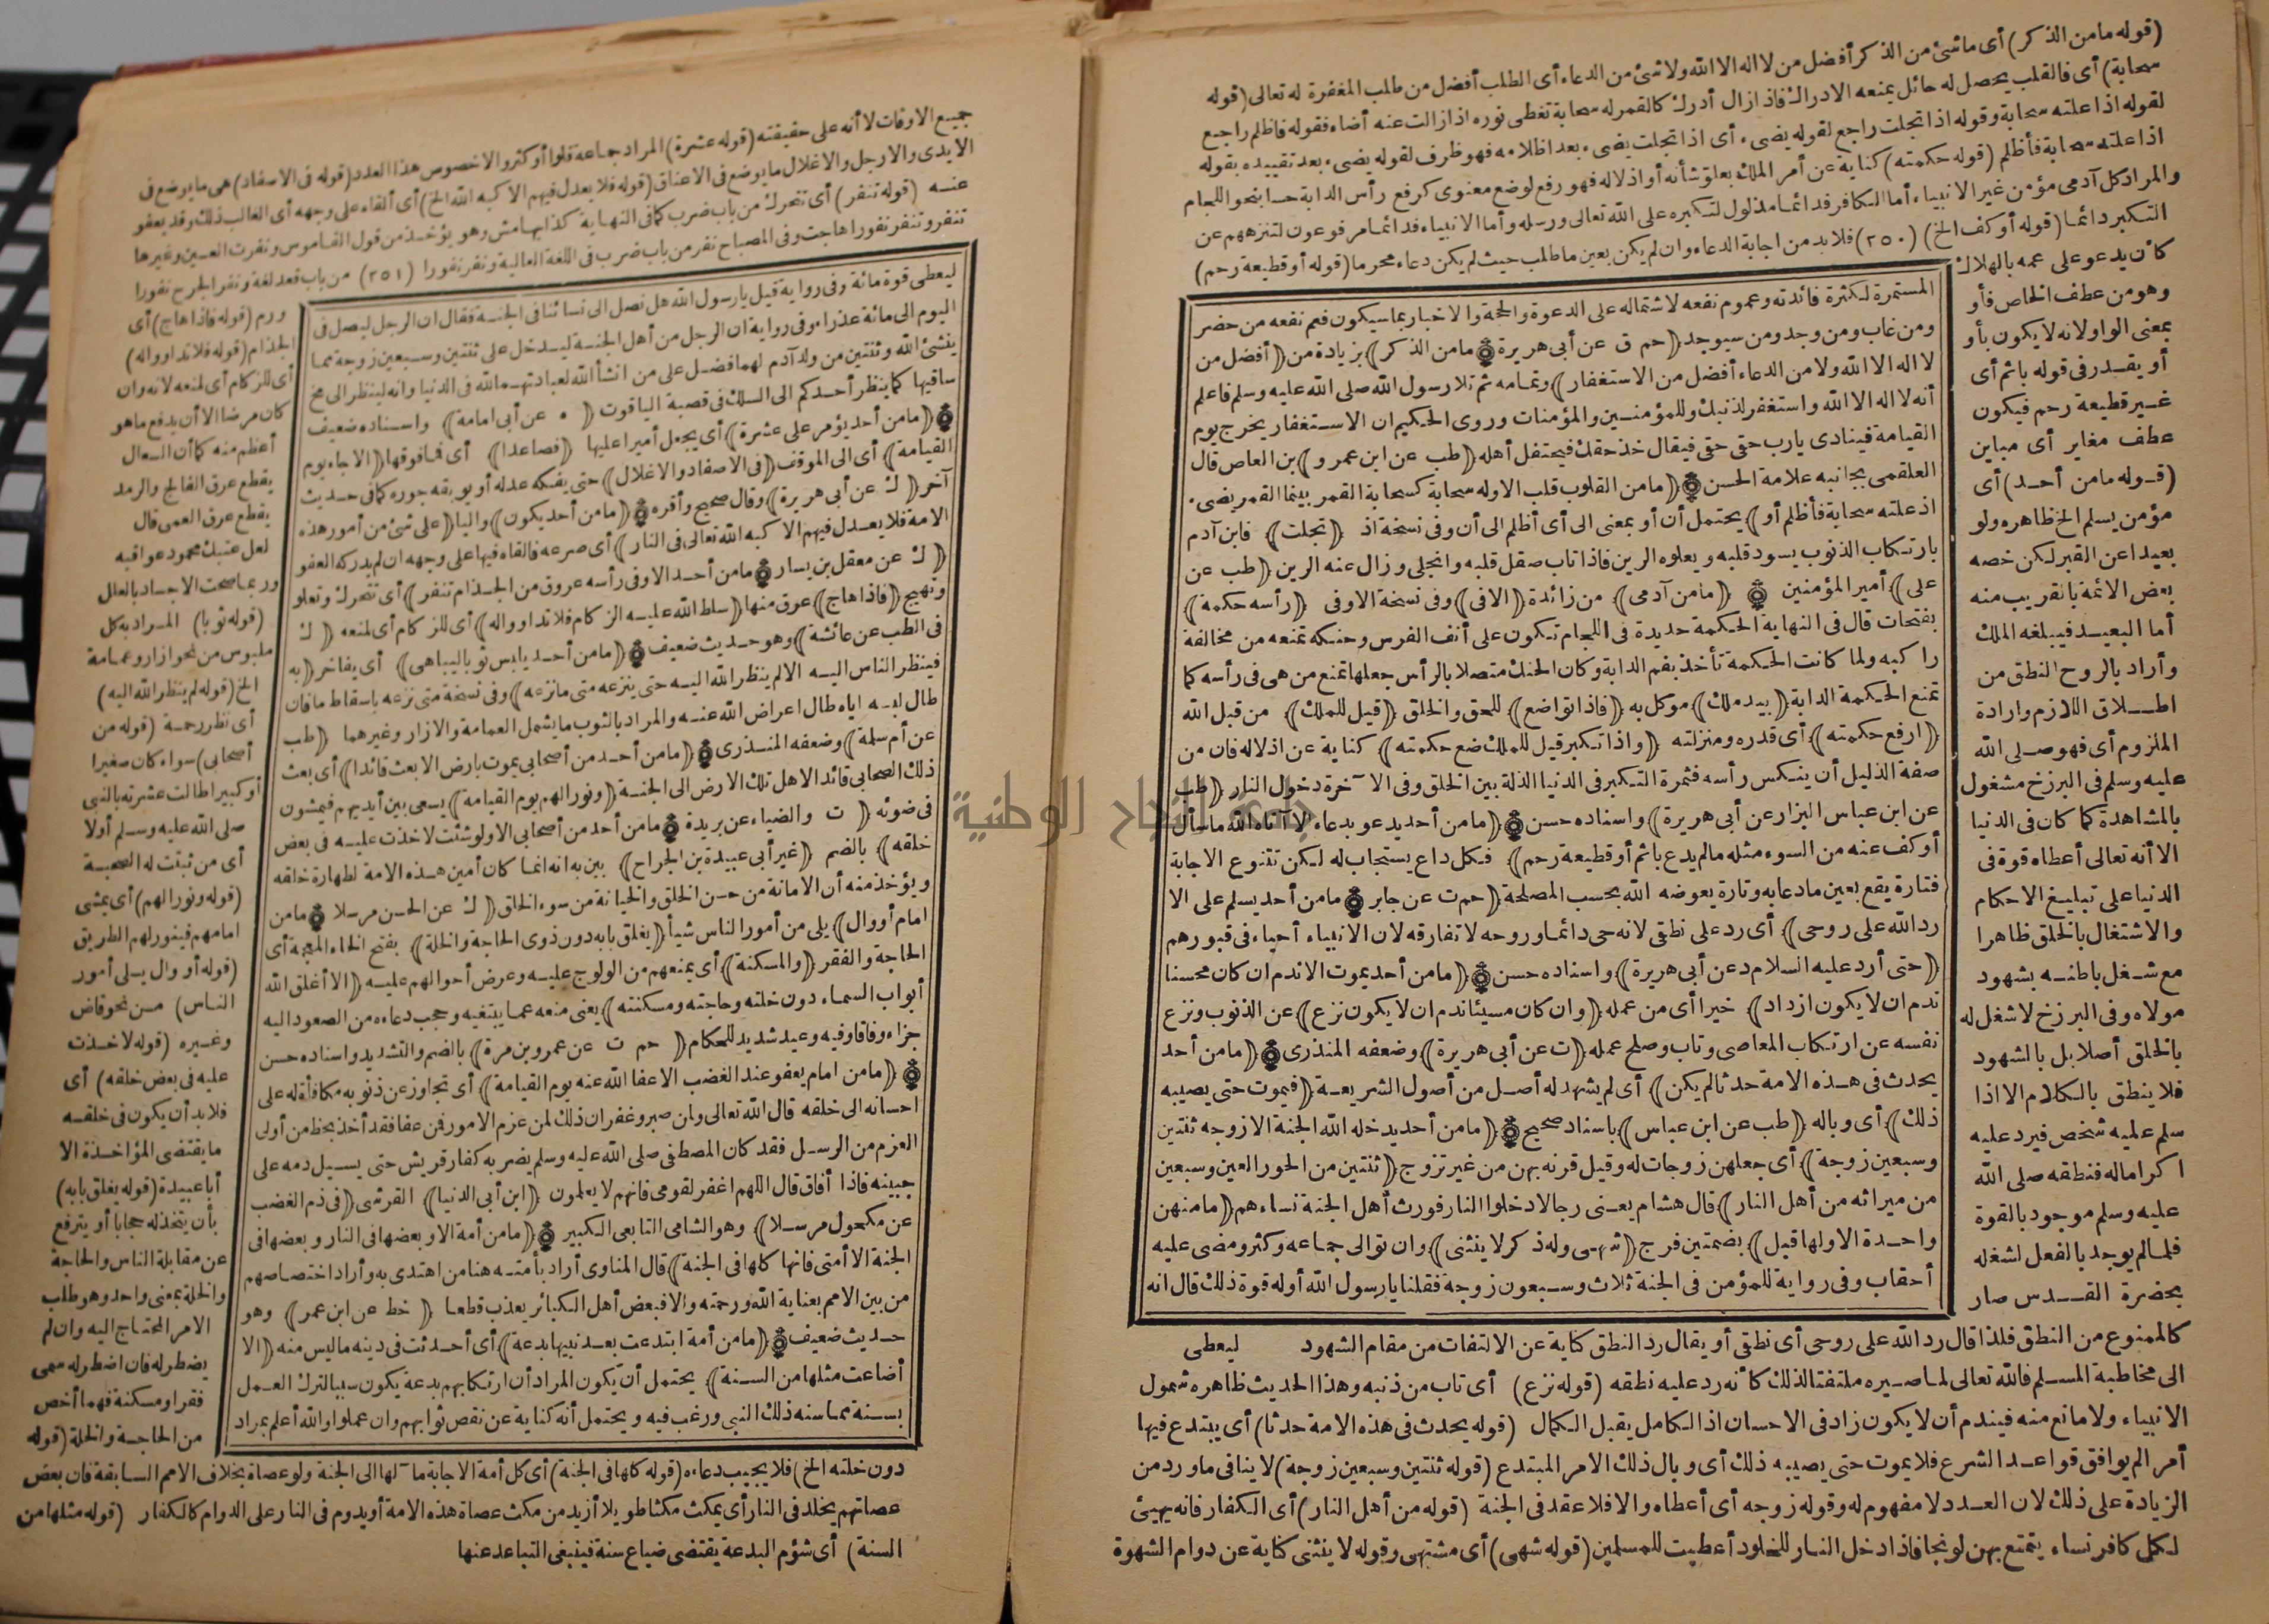 (قوله مامن الذكر) أى ماشئ من الذكر أفضل من لااله الا الله ولاشئ من الدعاء أى الطلب أفضل من طلب المغفرة له تعالى (قوله
سحابة) أى فالقلب يحصل له حائل يمنعه الادراك فاذا زال أدرك كالقمر له سحابة تغطى نوره اذا زالت عنه أضاء فقوله فاظلم راجع
لقوله اذا علته سحابة وقوله اذا تجلت راجع لقوله يضىء أى اذا تجلت يضىء بعد اظلامه فهو ظرف لقوله يضىء بعد تقييده بقوله
اذا علته سحابة فأظلم (قوله حكمته) كناية عن أمر الملك بعلو شأنه أو اذلاله فهو رفع لوضع معنوى كرفع رأس الدابة حسا بنحو اللجام
والمراد كل آدمى مؤمن غير الانبياء أما الكافر فدائما مذلول لتكبره على الله تعالى ورسله وأما الانبياء فدائما مرفوعون لتنزههم عن
التكبر دائما (قوله أو كف الخ) (٢٥٠) فلابد من اجابة الدعاء وان لم يكن بعين ماطلب حيث لم يكن دعاء محرما (قوله أو قطيعة رحم)
كأن يدعو على عمه بالهلاك
وهو من عطف الخاص فأو
بمعنى الواو لانه لا يكون بأو
أو يقدر فى قوله باثم أى
غير قطيعة رحم فيكون
عطف مغاير أى مباين
(قوله مامن أحد) أى
مؤمن يسلم الخ ظاهره ولو
بعيدا عن القبر لكن خصه
بعض الائمة بالقريب منه
أما البعيد فيبلغه الملك
وأراد بالروح النطق من
اطلاق اللازم وارادة
الملزوم أى فهو صلى الله
عليه وسلم فى البرزخ مشغول
بالمشاهدة كما كان فى الدنيا
الا أنه تعالى أعطاه قوة فى
الدنيا على تبليغ الاحكام
والاشتغال بالخلق ظاهرا
مع شغل باطنه بشهود
مولاه وفى البرزخ لا شغل له
بالخلق أصلا بل بالشهود
فلا ينطق بالكلام الا اذا
سلم عليه شخص فيرد عليه
اكراما له فنطقه صلى الله
عليه وسلم موجود بالقوة
فلما لم يوجد بالفعل لشغله
بحضرة القدس صار
المستمرة لكثرة فائدته وعموم نفعه لاشتماله على الدعوة والحجة والاخبار بما سيكون فعم نفعه من حضر
ومن غاب ومن وجد ومن سيوجد (حم ق عن أبى هريرة * مامن الذكر) بزيادة من (أفضل من
لا اله الا الله ولا من الدعاء أفضل من الاستغفار) وتمامه ثم تلا رسول الله صلى الله عليه وسلم فاعلم
أنه لا اله الا الله واستغفر لذنبك وللمؤمنين والمؤمنات وروى الحكيم ان الاستغفار يخرج يوم
القيامة فينادى يارب حقى حقى فيقال خذ حقك فيحتفل أهله (طب عن ابن عمرو) بن العاص قال
العلقمى بجانبه علامة الحسن * (مامن القلوب قلب الا وله سحابة كسحابة القمر بينما القمر يضىء
اذ علته سحابة فأظلم أو) يحتمل أن أو بمعنى الى أى أظلم الى أن وفى نسخة اذ (تجلت) فابن آدم
بارتكاب الذنوب يسود قلبه ويعلوه الرين فاذا تاب صقل قلبه وانجلى وزال عنه الرين (طب عن
على) أمير المؤمنين * (مامن آدمى) من زائدة (الا فى) وفى نسخة الا وفى (رأسه حكمة)
بفتحات قال فى النهاية الحكمة حديدة فى اللجام تكون على أنف الفرس وحنكه تمنعه من مخالفة
راكبه ولما كانت الحكمة تأخذ بفم الدابة وكان الحنك متصلا بالرأس جعلها تمنع من هى فى رأسه كما
تمنع الحكمة الدابة (بيد ملك) موكل به (فاذا تواضع) للحق والخلق (قيل للملك) من قبل الله
(ارفع حكمته) أى قدره ومنزلته (واذا تكبر قيل للملك ضع حكمته) كناية عن اذلاله فان من
صفة الذليل أن ينكس رأسه فثمرة التكبر فى الدنيا الذلة بين الخلق وفى الآخرة دخول النار (طب
عن ابن عباس البزار عن أبى هريرة) واسناده حسن * (مامن أحد يدعو بدعاء الا آتاه الله ماسأل
أو كف عنه من السوء مثله مالم يدع باثم أو قطيعة رحم) فكل داع يستجاب له لكن تتنوع الاجابة
فتارة يقع بعين مادعابه وتارة يعوضه الله بحسب المصلحة (حم ت عن جابر * مامن أحد يسلم على الا
رد الله على روحى) أى رد على نطقى لانه حى دائما وروحه لا تفارقه لان الانبياء أحياء فى قبورهم
(حتى أرد عليه السلام د عن أبى هريرة) واسناده حسن * (مامن أحد يموت الا ندم ان كان محسنا
ندم ان لا يكون ازداد) خيرا أى من عمله (وان كان مسيئا ندم ان لا يكون نزع) عن الذنوب ونزع
نفسه عن ارتكاب المعاصى وتاب وصلح عمله (ت عن أبى هريرة) وضعفه المنذرى * (مامن أحد
يحدث فى هذه الامة حدثا لم يكن) أى لم يشهد له أصل من أصول الشريعة (فيموت حتى يصيبه
ذلك) أى وباله (طب عن ابن عباس) باسناد صحيح * (مامن أحد يدخله الله الجنة الا زوجه ثنتين
وسبعين زوجة) أى جعلهن زوجات له وقيل قرنه بهن من غير تزوج (ثنتين من الحور العين وسبعين
من ميراثه من أهل النار) قال هشام يعنى رجالا دخلوا النار فورث أهل الجنة نساءهم (مامنهن
واحدة الا ولها قبل) بضمتين فرج (شهى وله ذكر لا ينثنى) وان توالى جماعه وكثر ومضى عليه
أحقاب وفى رواية للمؤمن فى الجنة ثلاث وسبعون زوجة فقلنا يا رسول الله أوله قوة ذلك قال انه
كالممنوع من النطق فلذا قال رد الله على روحى أى نطقى أو يقال رد النطق كناية عن الالتفات من مقام الشهود ليعطى
الى مخاطبة المسلم فالله تعالى لما صيره ملتفتا لذلك كأنه رد عليه نطقه (قوله نزع) أى تاب من ذنبه وهذا الحديث ظاهره شمول
الانبياء ولا مانع منه فيندم أن لا يكون زاد فى الاحسان اذ الكامل يقبل الكمال (قوله يحدث فى هذه الامة حدثا) أى يبتدع فيها
أمرا لم يوافق قواعد الشرع فلا يموت حتى يصيبه ذلك أى وبال ذلك الامر المبتدع (قوله ثنتين وسبعين زوجة) لا ينافى ماورد من
الزيادة على ذلك لان العدد لا مفهوم له وقوله زوجه أى أعطاه والا فلا عقد فى الجنة (قوله من أهل النار) أى الكفار فانه يهيئ
لكل كافر نساء يتمتع بهن لو نجا فاذا دخل النار للخلود أعطيت للمسلمين (قوله شهى) أى مشتهى وقوله لا ينثنى كناية عن دوام الشهوة
جميع الاوقات لا أنه على حقيقته (قوله عشرة) المراد جماعة قلوا أو كثروا لا خصوص هذا العدد (قوله فى الاصفاد) هى مايوضع فى
الايدى والارجل والاغلال مايوضع فى الاعناق (قوله فلا يعدل فيهم الا كبه الله الخ) أى ألقاه على وجهه أى الغالب ذلك وقد يعفو
عنه (قوله تنفر) أى تتحرك من باب ضرب كما فى النهاية كذا بهامش وهو يؤخذ من قول القاموس ونفرت العين وغيرها
تنفر وتنفر نفورا هاجت وفى المصباح نفر من باب ضرب فى اللغة العالية ونفر نفورا (٢٥١) من باب قعد لغة ونفر الجرح نفورا
ورم (قوله فاذا هاج) أى
الجذام (قوله فلا تداوواله)
أى للزكام أى لمنعه لانه وان
كان مرضا الا أن يدفع ماهو
أعظم منه كما أن السعال
يقطع عرق الفالج والرمد
يقطع عرق العمى قال
لعل عتبك محمود عواقبه
وربما صحت الاجساد بالعلل
(قوله ثوبا) المراد به كل
ملبوس من نحو ازار وعمامة
الخ (قوله لم ينظر الله اليه)
أى نظر رحمة (قوله من
أصحابى) سواء كان صغيرا
أو كبيرا طالت عشرته بالنبى
صلى الله عليه وسلم أولا
أى من ثبتت له الصحبة
(قوله ونورا لهم) أى يمشى
امامهم فينور لهم الطريق
(قوله أو وال يلى أمور
الناس) من نحو قاض
وغيره (قوله لاخذت
عليه فى بعض خلقه) أى
فلابد أن يكون فى خلقه
مايقتضى المؤاخذة الا
أبا عبيدة (قوله يغلق بابه)
بأن يتخذ له حجابا أو يترفع
عن مقابلة الناس والحاجة
والخلة بمعنى واحد وهو طلب
الامر المحتاج اليه وان لم
يضطر له فان اضطر له سمى
فقرا ومسكنة فهما أخص
من الحاجة والخلة (قوله
ليعطى قوة مائة وفى رواية قيل يارسول الله هل نصل الى نسائنا فى الجنة فقال ان الرجل ليصل فى
اليوم الى مائة عذراء وفى رواية ان الرجل من أهل الجنة ليدخل على ثنتين وسبعين زوجة مما
ينشئ الله وثنتين من ولد آدم لهما فضل على من انشأ الله لعبادتهما الله فى الدنيا وانه لينظر الى مخ
ساقيها كما ينظر أحدكم الى السلك فى قصبة الياقوت (ه عن أبى امامة) واسناده ضعيف
* (مامن أحد يؤمر على عشرة) أى يجعل أميرا عليها (فصاعدا) أى فما فوقها (الا جاء يوم
القيامة) أى الى الموقف (فى الاصفاد والاغلال) حتى يفكه عدله أو يوبقه جوره كما فى حديث
آخر (ك عن أبى هريرة) وقال صحيح وأقره * (مامن أحد يكون) واليا (على شئ من أمور هذه
الامة فلا يعدل فيهم الا كبه الله تعالى فى النار) أى صرعه فالقاه فيها على وجهه ان لم يدركه العفو
(ك عن معقل بن يسار * مامن أحد الا وفى رأسه عروق من الجذام تنفر) أى تتحرك وتعلو
وتهيج (فاذا هاج) عرق منها (سلط الله عليه الزكام فلا تداوواله) أى للزكام أى لمنعه (ك
فى الطب عن عائشة) وهو حديث ضعيف * (مامن أحد يلبس ثوبا ليباهى) أى يفاخر (به
فينظر الناس اليه الا لم ينظر الله اليه حتى ينزعه متى مانزعه) وفى نسخة متى نزعه باسقاط ما فان
طال لبسه اياه طال اعراض الله عنه والمراد بالثوب مايشمل العمامة والازار وغيرهما (طب
عن أم سلمة) وضعفه المنذرى * (مامن أحد من أصحابى يموت بارض الا بعث قائدا) أى بعث
ذلك الصحابى قائدا لاهل تلك الارض الى الجنة (ونورا لهم يوم القيامة) يسعى بين أيديهم فيمشون
فى ضوئه (ت والضياء عن بريدة * مامن أحد من أصحابى الا ولو شئت لاخذت عليه فى بعض
خلقه) بالضم (غير أبى عبيدة بن الجراح) بين به انه انما كان أمين هذه الامة لطهارة خلقه
ويؤخذ منه أن الامانة من حسن الخلق والخيانة من سوء الخلق (ك عن الحسن مرسلا * مامن
امام أو وال) يلى من أمور الناس شيأ (يغلق بابه دون ذوى الحاجة والخلة) بفتح الخاء المعجمة أى
الحاجة والفقر (والمسكنة) أى يمنعهم من الولوج عليه وعرض أحوالهم عليه (الا أغلق الله
أبواب السماء دون خلته وحاجته ومسكنته) يعنى منعه عما يبتغيه وحجب دعاءه من الصعود اليه
جزاء وفاقا وفيه وعيد شديد للحكام (حم ت عن عمرو بن مرة) بالضم والتشديد واسناده حسن
* (مامن امام يعفو عند الغضب الا عفا الله عنه يوم القيامة) أى تجاوز عن ذنوبه مكافأة له على
احسانه الى خلقه قال الله تعالى ولمن صبر وغفر ان ذلك لمن عزم الامور فمن عفا فقد أخذ بحظ من أولى
العزم من الرسل فقد كان المصطفى صلى الله عليه وسلم يضربه كفار قريش حتى يسيل دمه على
جبينه فاذا أفاق قال اللهم اغفر لقومى فانهم لا يعلمون (ابن أبى الدنيا) القرشى (فى ذم الغضب
عن مكحول مرسلا) وهو الشامى التابعى الكبير * (مامن أمة الا وبعضها فى النار وبعضها فى
الجنة الا أمتى فانها كلها فى الجنة) قال المناوى أراد بأمته هنا من اهتدى به وأراد اختصاصهم
من بين الامم بعناية الله ورحمته والا فبعض أهل الكبائر يعذب قطعا (خط عن ابن عمر) وهو
حديث ضعيف * (مامن أمة ابتدعت بعد نبيها بدعة) أى أحدثت فى دينه ماليس منه (الا
أضاعت مثلها من السنة) يحتمل أن يكون المراد أن ارتكابهم بدعة يكون سببا لترك العمل
بسنة مما سنه ذلك النبى ورغب فيه ويحتمل أنه كناية عن نقص ثوابهم وان عملوا والله أعلم بمراد
دون خلته الخ) فلا يجيب دعاءه (قوله كلها فى الجنة) أى كل أمة الاجابة مآلها الى الجنة ولو عصاة بخلاف الامم السابقة فان بعض
عصاتهم يخلد فى النار أى يمكث مكثا طويلا أزيد من مكث عصاة هذه الامة أو يدوم فى النار على الدوام كالكفار (قوله مثلها من
السنة) أى شؤم البدعة يقتضى ضياع سنة فينبغى التباعد عنها
جامعة النجاح الوطنية